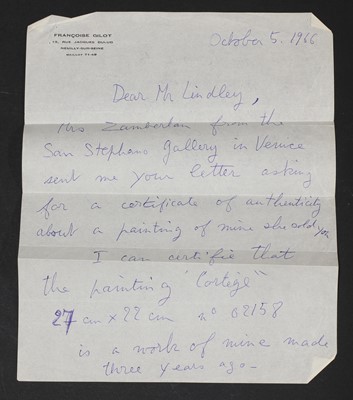 FRANÇOISE GILOT
NEUILLY-SUR-SEINE
October 5. 1966
Dear Mr Lindley,
Mrs Zamberlan from the
San Stephano Gallery in Venice
sent me your letter asking
for a certificate of authenticity
about a painting of mine she sold you
I can certifie that
the painting "Cortège"
27 cm x 22 cm n° 62158
is a work of mine made
three years ago_